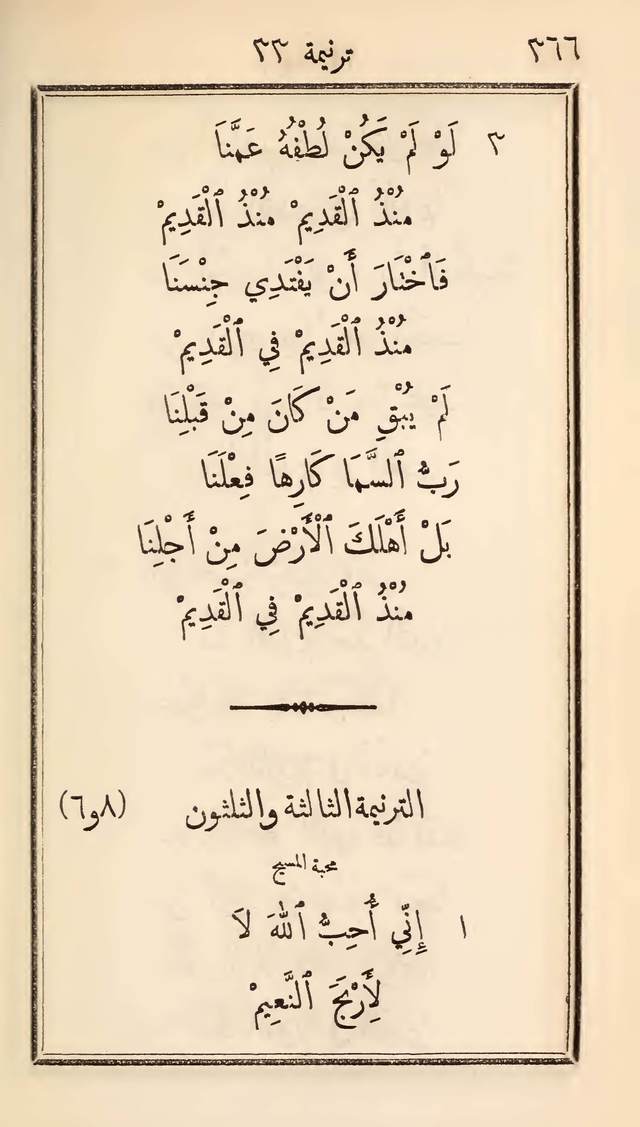 ٣٦٦ ترنيمة ٣٣
٣ لَوْ لَمْ يَكُنْ لُطْفُهُ عَمَّنَا
مُنْذُ ٱلْقَدِيمْ مُنْذُ ٱلْقَدِيمْ
فَٱخْتَارَ أَنْ يَفْتَدِي جِنْسَنَا
مُنْذُ ٱلْقَدِيمْ فِي ٱلْقَدِيمْ
لَمْ يُبْقِ مَنْ كَانَ مِنْ قَبْلِنَا
رَبُّ ٱلسَّمَا كَارِهًا فِعْلَنَا
بَلْ أَهْلَكَ ٱلْأَرْضَ مِنْ أَجْلِنَا
مُنْذُ ٱلْقَدِيمْ فِي ٱلْقَدِيمْ
الترنيمة الثالثة والثلثون (٨و٦)
محبة المسيح
١ إِنِّي أُحِبُّ ٱللهَ لاَ
لِأَرْبَحَ ٱلنَّعِيمْ